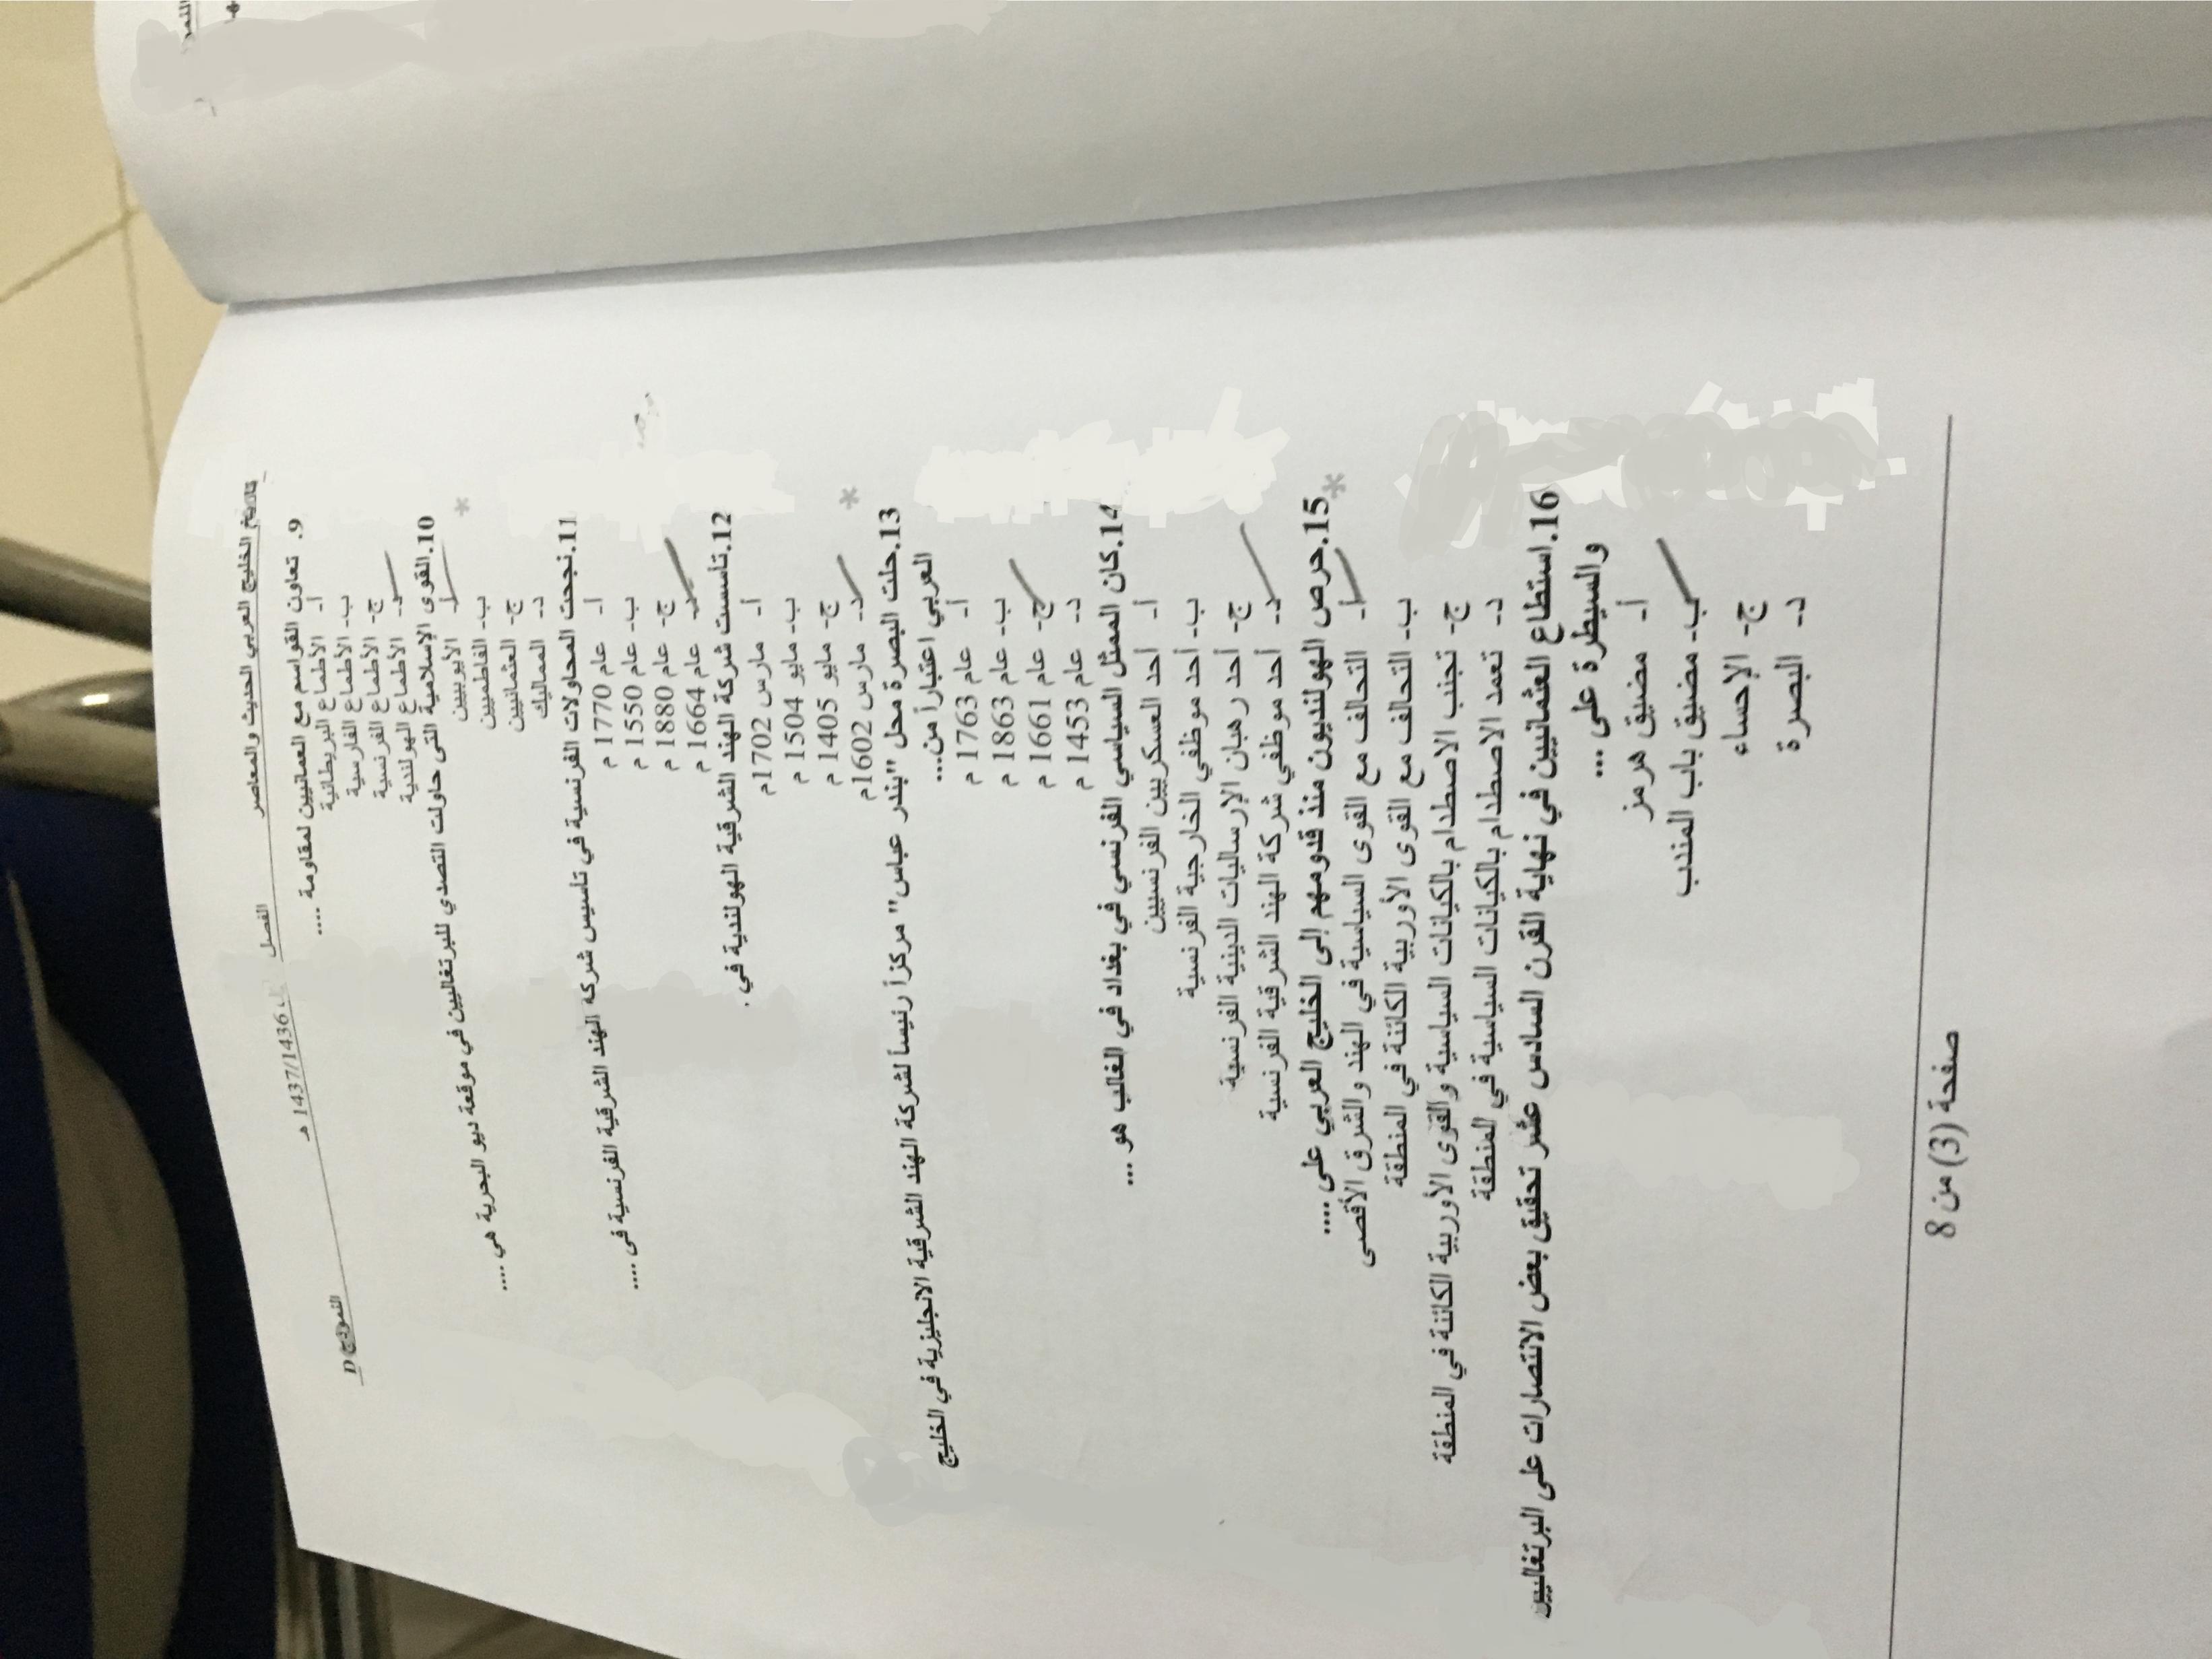 تاريخ الخليج العربي الحديث والمعاصر
الفصل
1437/1436 هـ
النموذج D
9. تعاون القواسم مع العمانيين لمقاومة ....
أ- الأطماع البريطانية
ب- الأطماع الفارسية
ج- الأطماع الفرنسية
د- الأطماع الهولندية
10. القوى الإسلامية التى حاولت التصدي للبرتغاليين في موقعة ديو البحرية هي ....
أ- الأيوبيين
ب- الفاطميين
ج- العثمانيين
د- المماليك
11. نجحت المحاولات الفرنسية في تأسيس شركة الهند الشرقية الفرنسية فى ....
أ- عام 1770 م
ب- عام 1550 م
ج- عام 1880 م
د- عام 1664 م
12. تأسست شركة الهند الشرقية الهولندية في .
أ- مارس 1702م
ب- مايو 1504 م
ج- مايو 1405 م
د- مارس 1602م
13. حلت البصرة محل "بندر عباس" مركزاً رئيساً لشركة الهند الشرقية الانجليزية في الخليج
العربي اعتباراً من...
أ- عام 1763 م
ب- عام 1863 م
ج- عام 1661 م
د- عام 1453 م
14. كان الممثل السياسي الفرنسي في بغداد في الغالب هو ...
أ- أحد العسكريين الفرنسيين
ب- أحد موظفي الخارجية الفرنسية
ج- أحد رهبان الإرساليات الدينية الفرنسية
د- أحد موظفي شركة الهند الشرقية الفرنسية
15. حرص الهولنديون منذ قدومهم إلى الخليج العربي على ....
أ- التحالف مع القوى السياسية في الهند والشرق الأقصى
ب- التحالف مع القوى الأوربية الكائنة في المنطقة
ج- تجنب الاصطدام بالكيانات السياسية والقوى الأوربية الكائنة في المنطقة
د- تعمد الاصطدام بالكيانات السياسية في المنطقة
16. استطاع العثمانيين في نهاية القرن السادس عشر تحقيق بعض الانتصارات على البرتغاليين
والسيطرة على ...
أ- مضيق هرمز
ب- مضيق باب المندب
ج- الإحساء
د- البصرة
صفحة (3) من 8